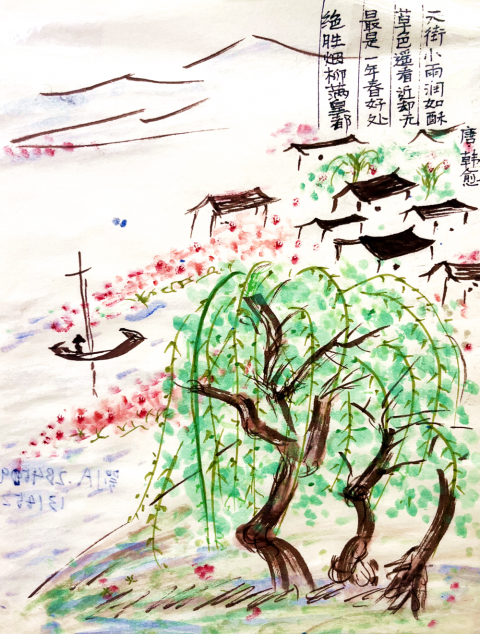 天街小雨润如酥
草色遥看近却无
最是一年春好处
绝胜烟柳满皇都
唐 韩愈